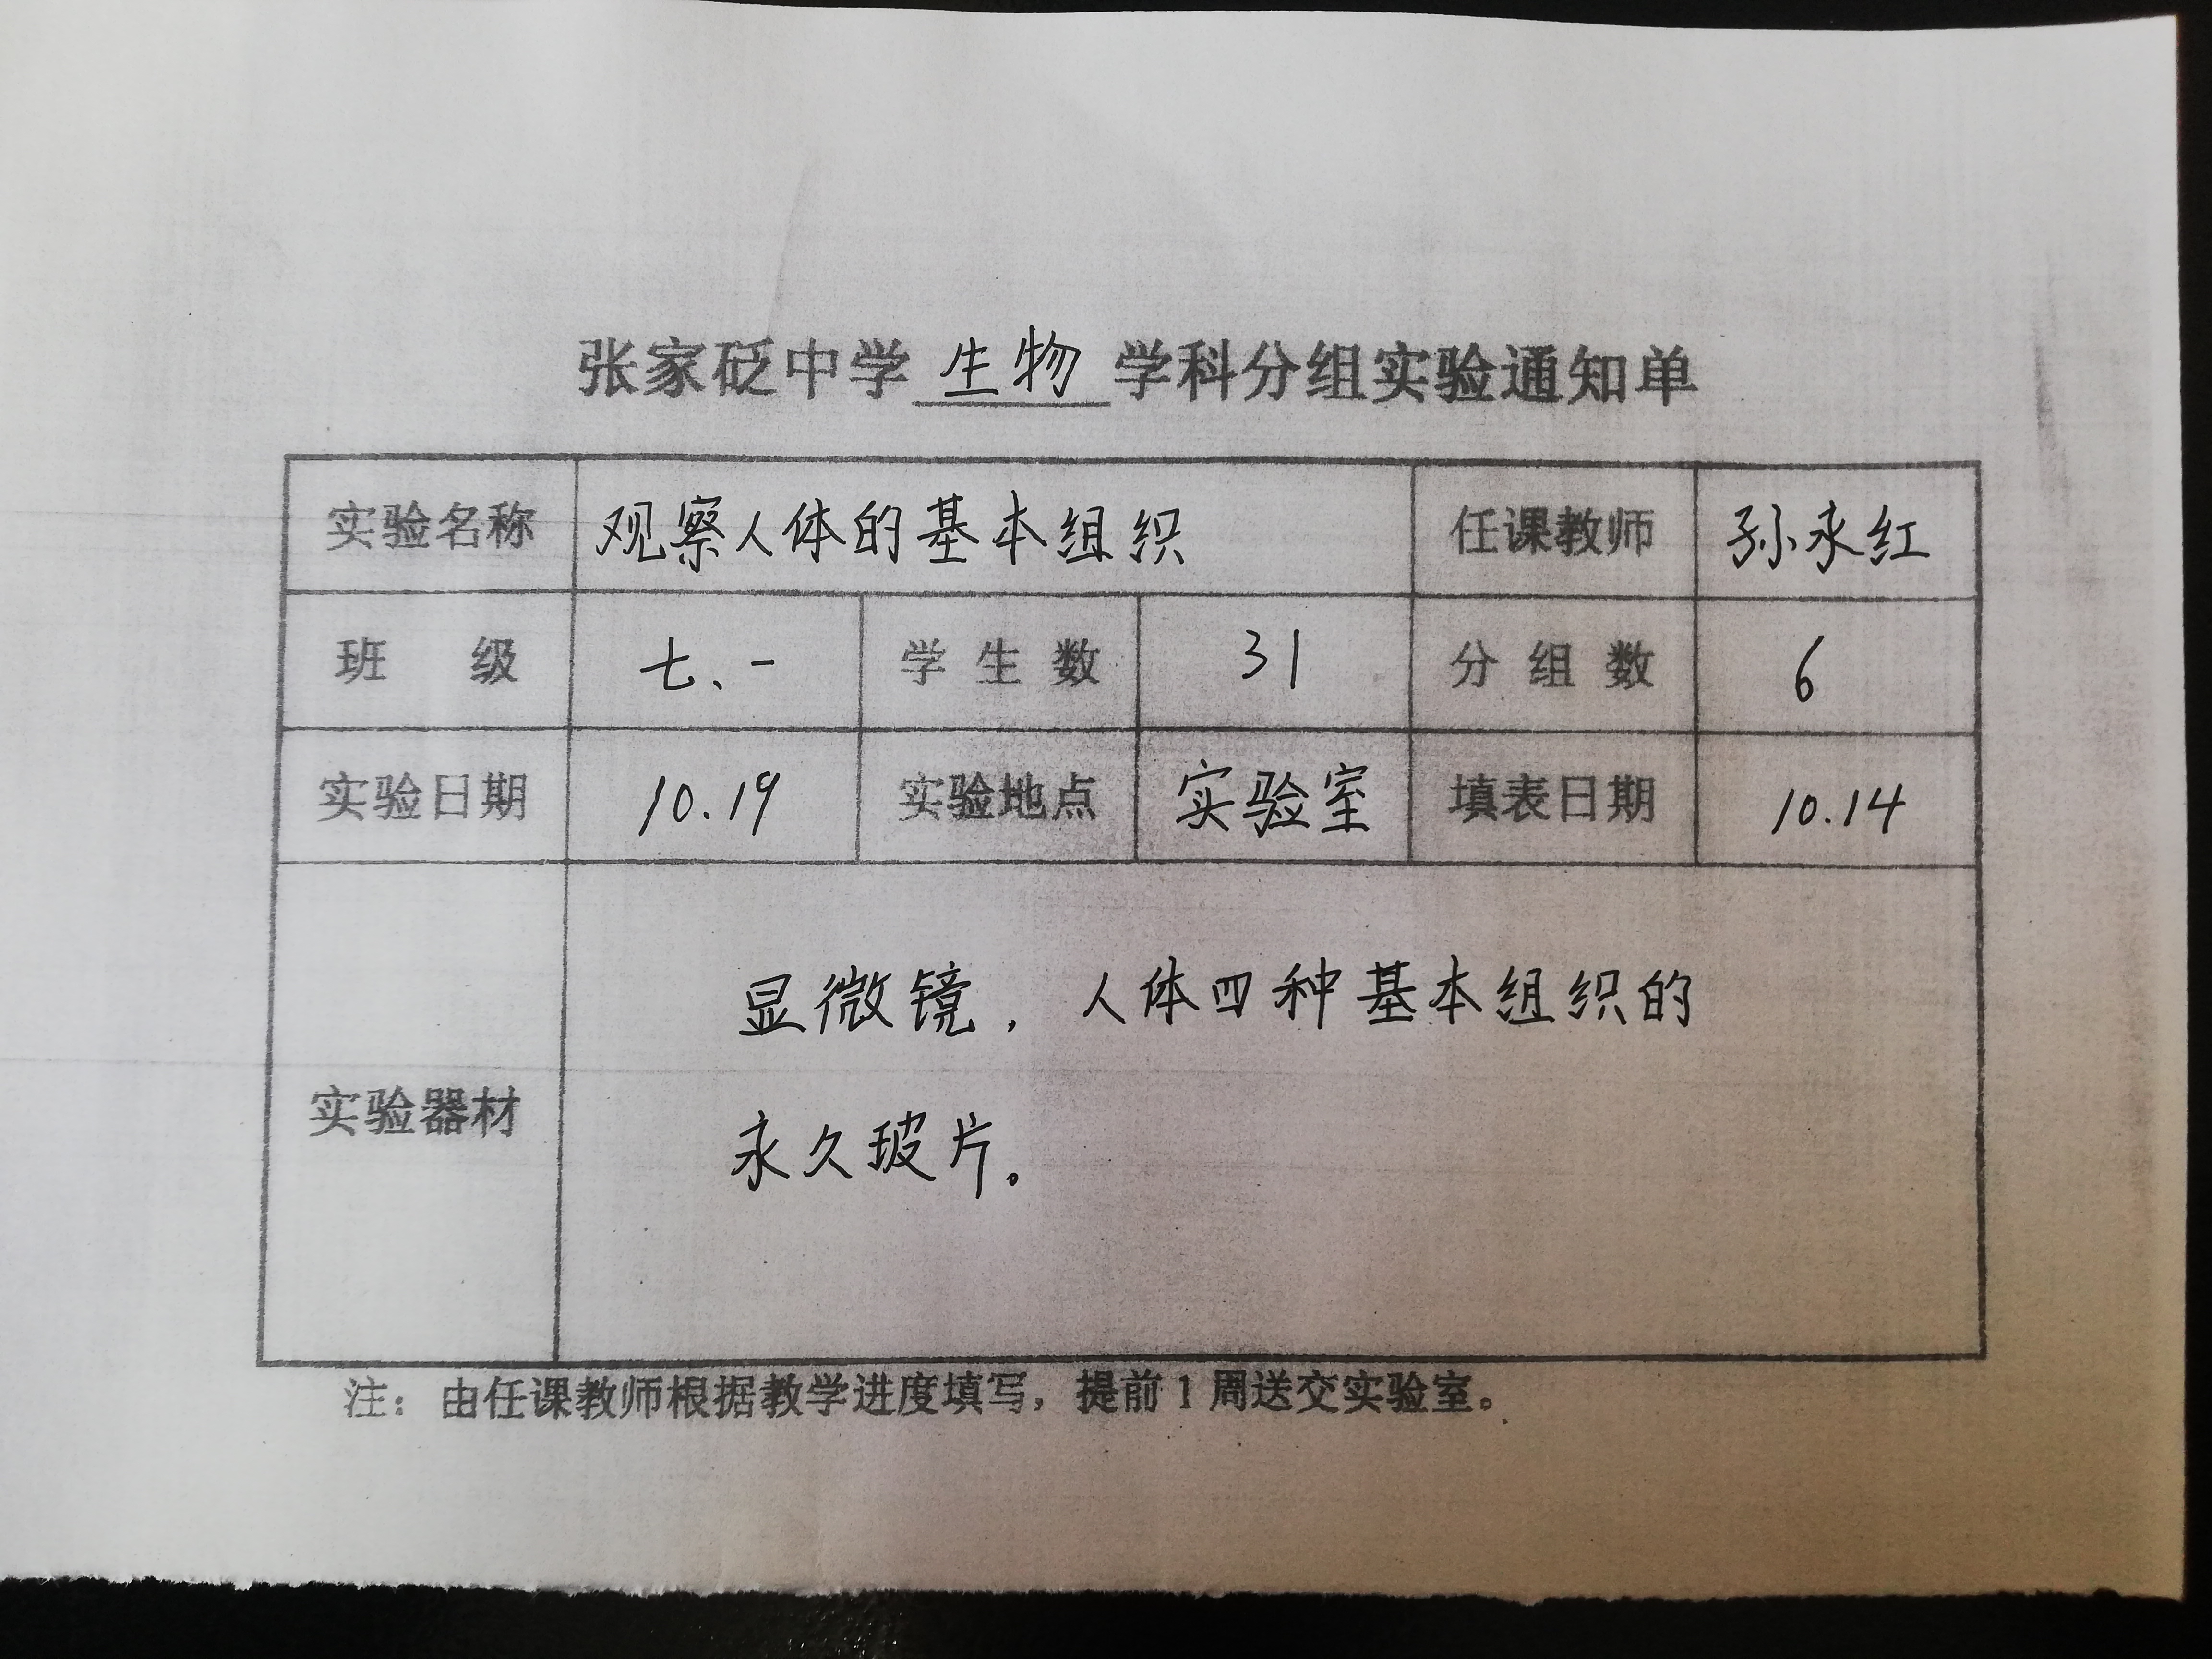 张家砭中学 生物 学科分组实验通知单
实验名称 观察人体的基本组织 任课教师 孙永红
班 级 七、一 学生数 31 分组数 6
实验日期 10.19 实验地点 实验室 填表日期 10.14
实验器材 显微镜，人体四种基本组织的
永久玻片。
注：由任课教师根据教学进度填写，提前1周送交实验室。